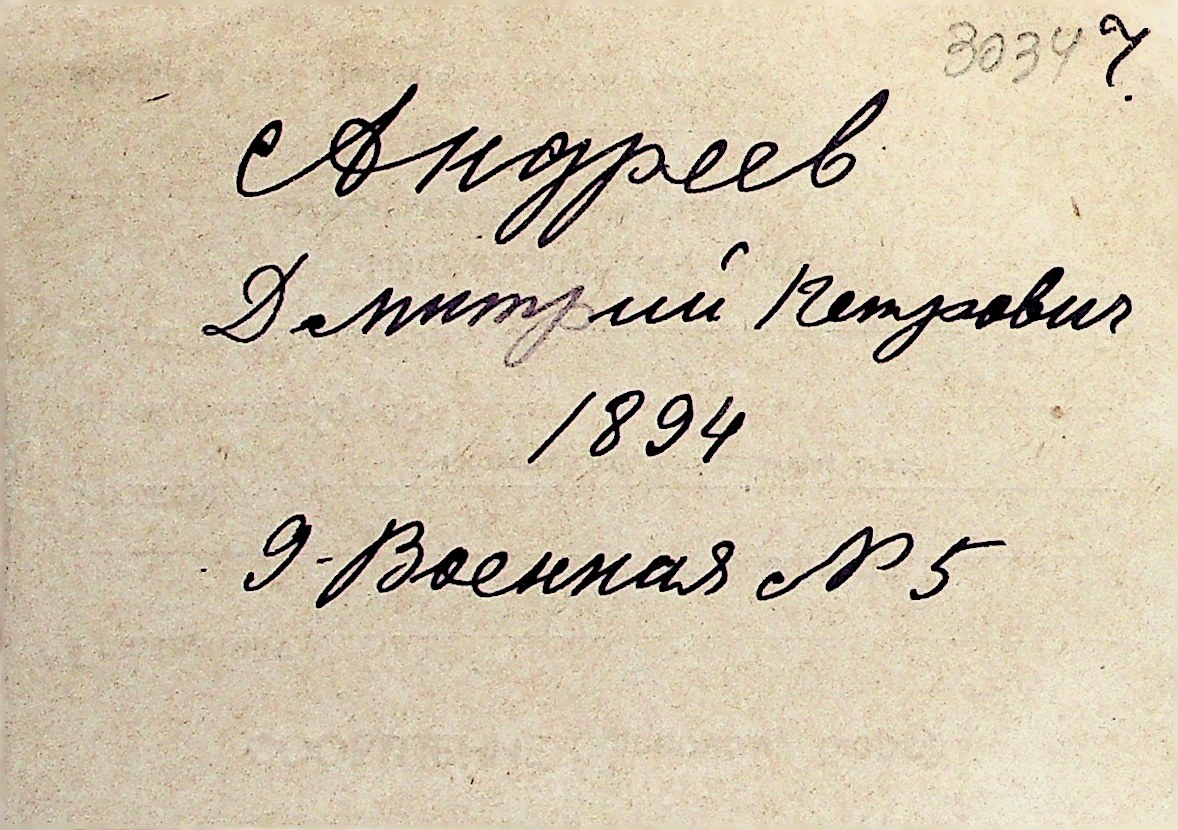 30347.
Андреев
Дмитрий Петрович
1894
9-Военная № 5